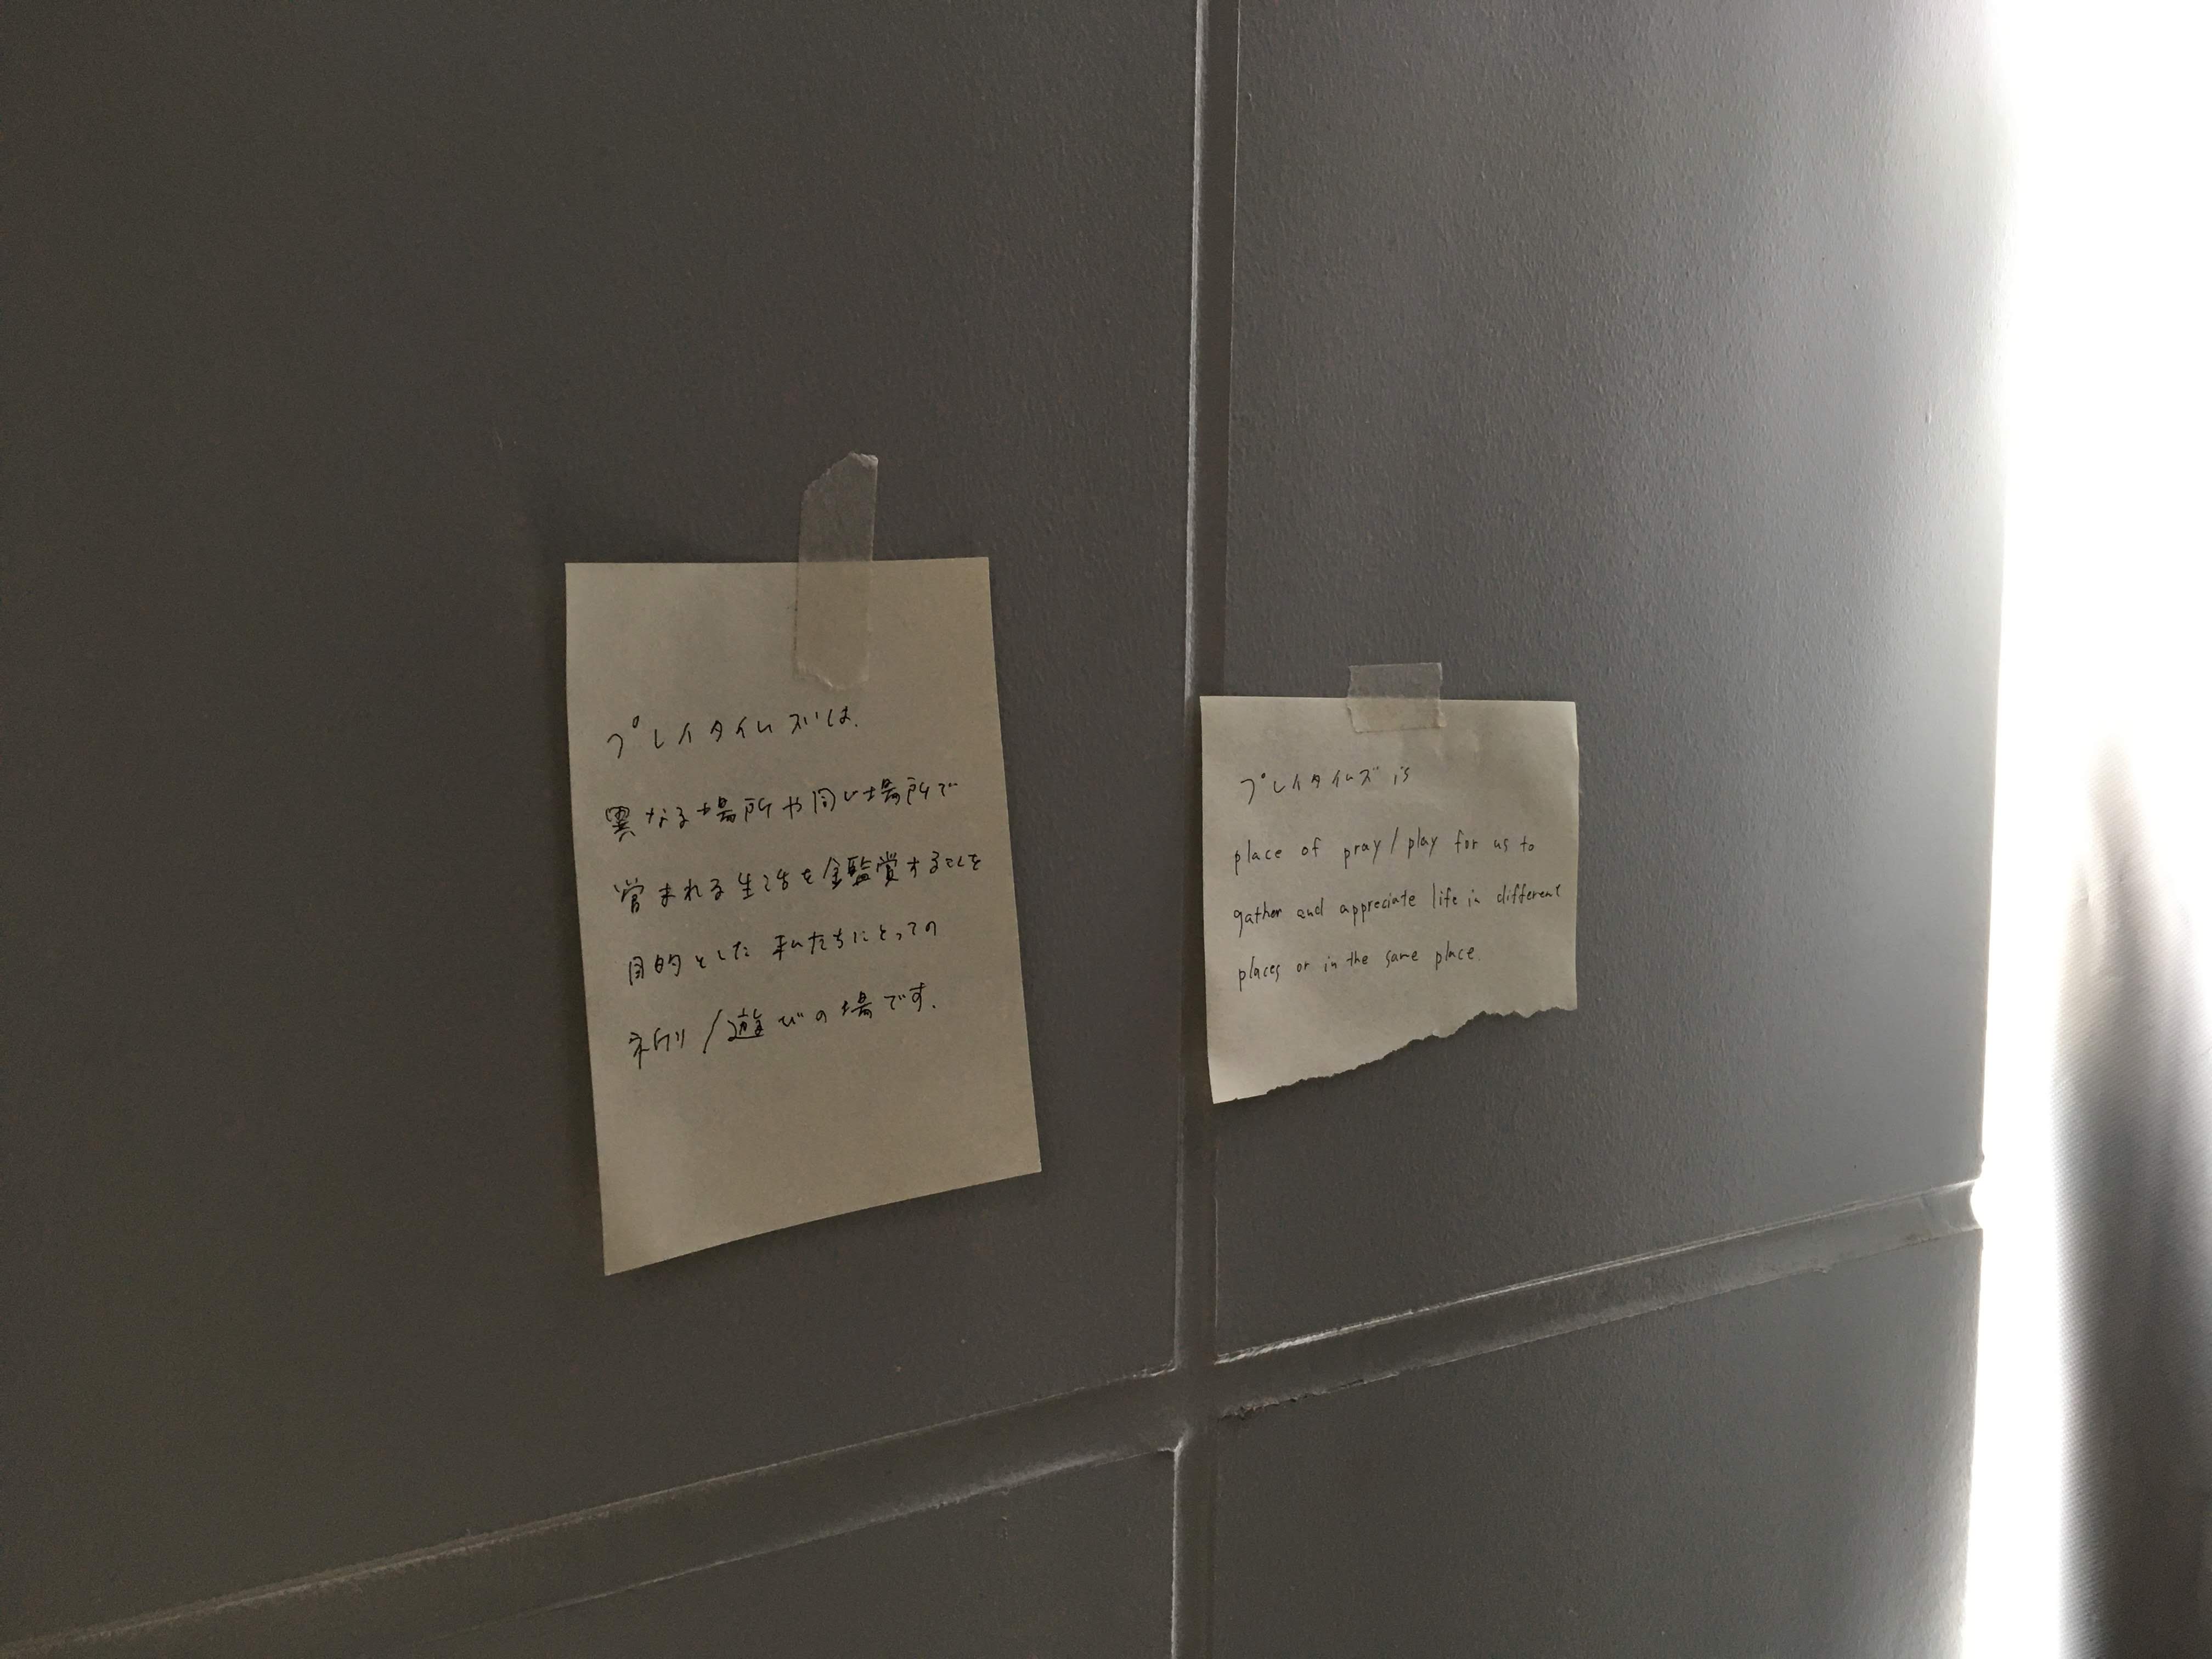 プレイタイムズは、
異なる場所や同じ場所で
営まれる生活を鑑賞することを
目的とした 私たちにとっての
祈り/遊びの場です.
プレイタイムズ is
place of pray/play for us to
gather and appreciate life in different
places or in the same place.